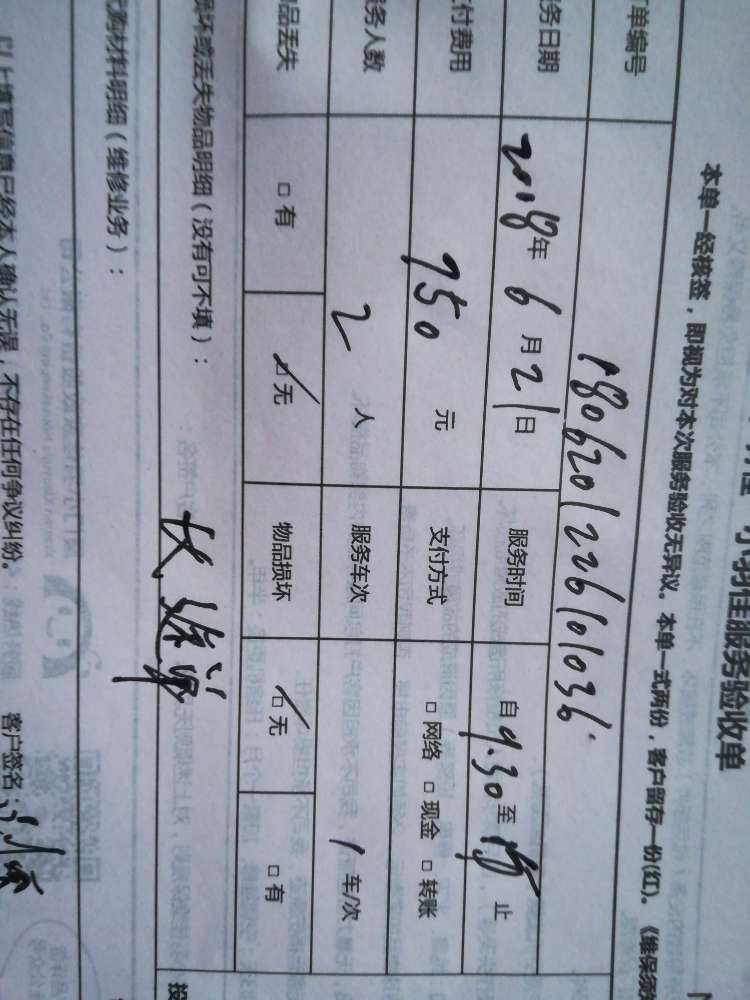 服务验收单
本单一经核签，即视为对本次服务验收无异议。本单一式两份，客户留存一份(红)。《维保须
单编号 1806201226101036
务日期 2018年6月21日 服务时间 自9.30至 止
付费用 950元 支付方式 □网络 □现金 □转账
务人数 2人 服务车次 1车/次
品丢失 □有 □无 物品损坏 □无 □有
损坏或丢失物品明细（没有可不填）：
长途
购材料明细（维修业务）：
以上填写信息已经本人确认无误，不存在任何争议纠纷。 客户签名：